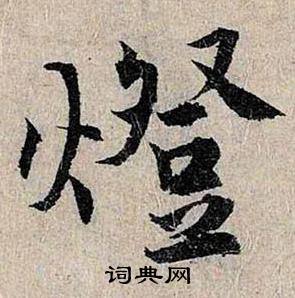 燈
词典网